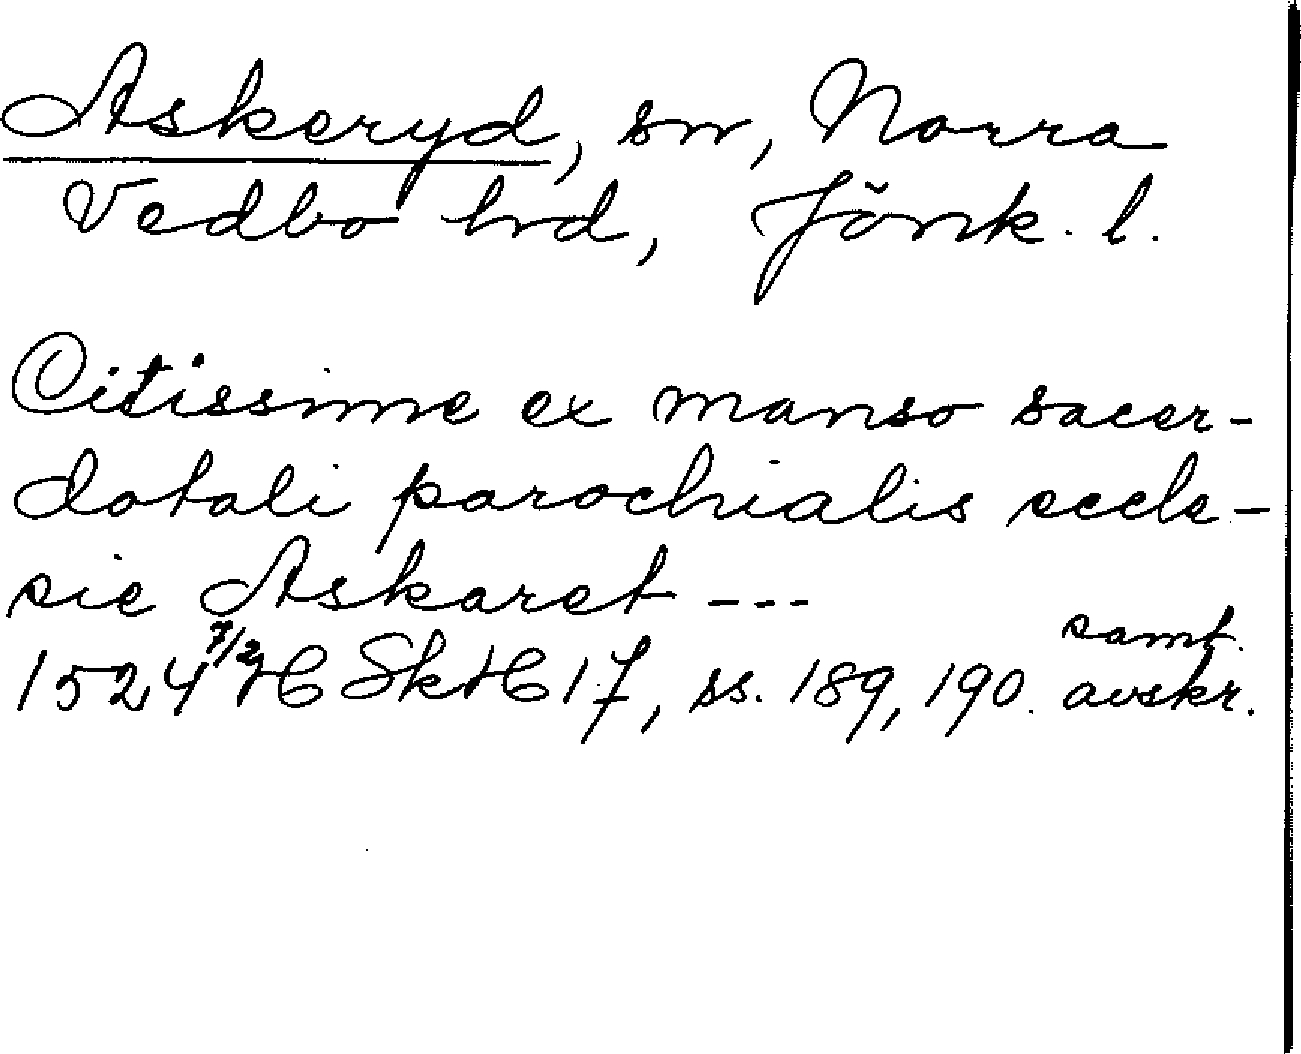 Askeryd, sn, Norra
Vedbo hrd, Jönk. l.
Citissime ex manso sacer-
dotali parochialis eccle-
sie Askaret ---
1524 7/2 HSkH 17, ss. 189, 190. samt. avskr.